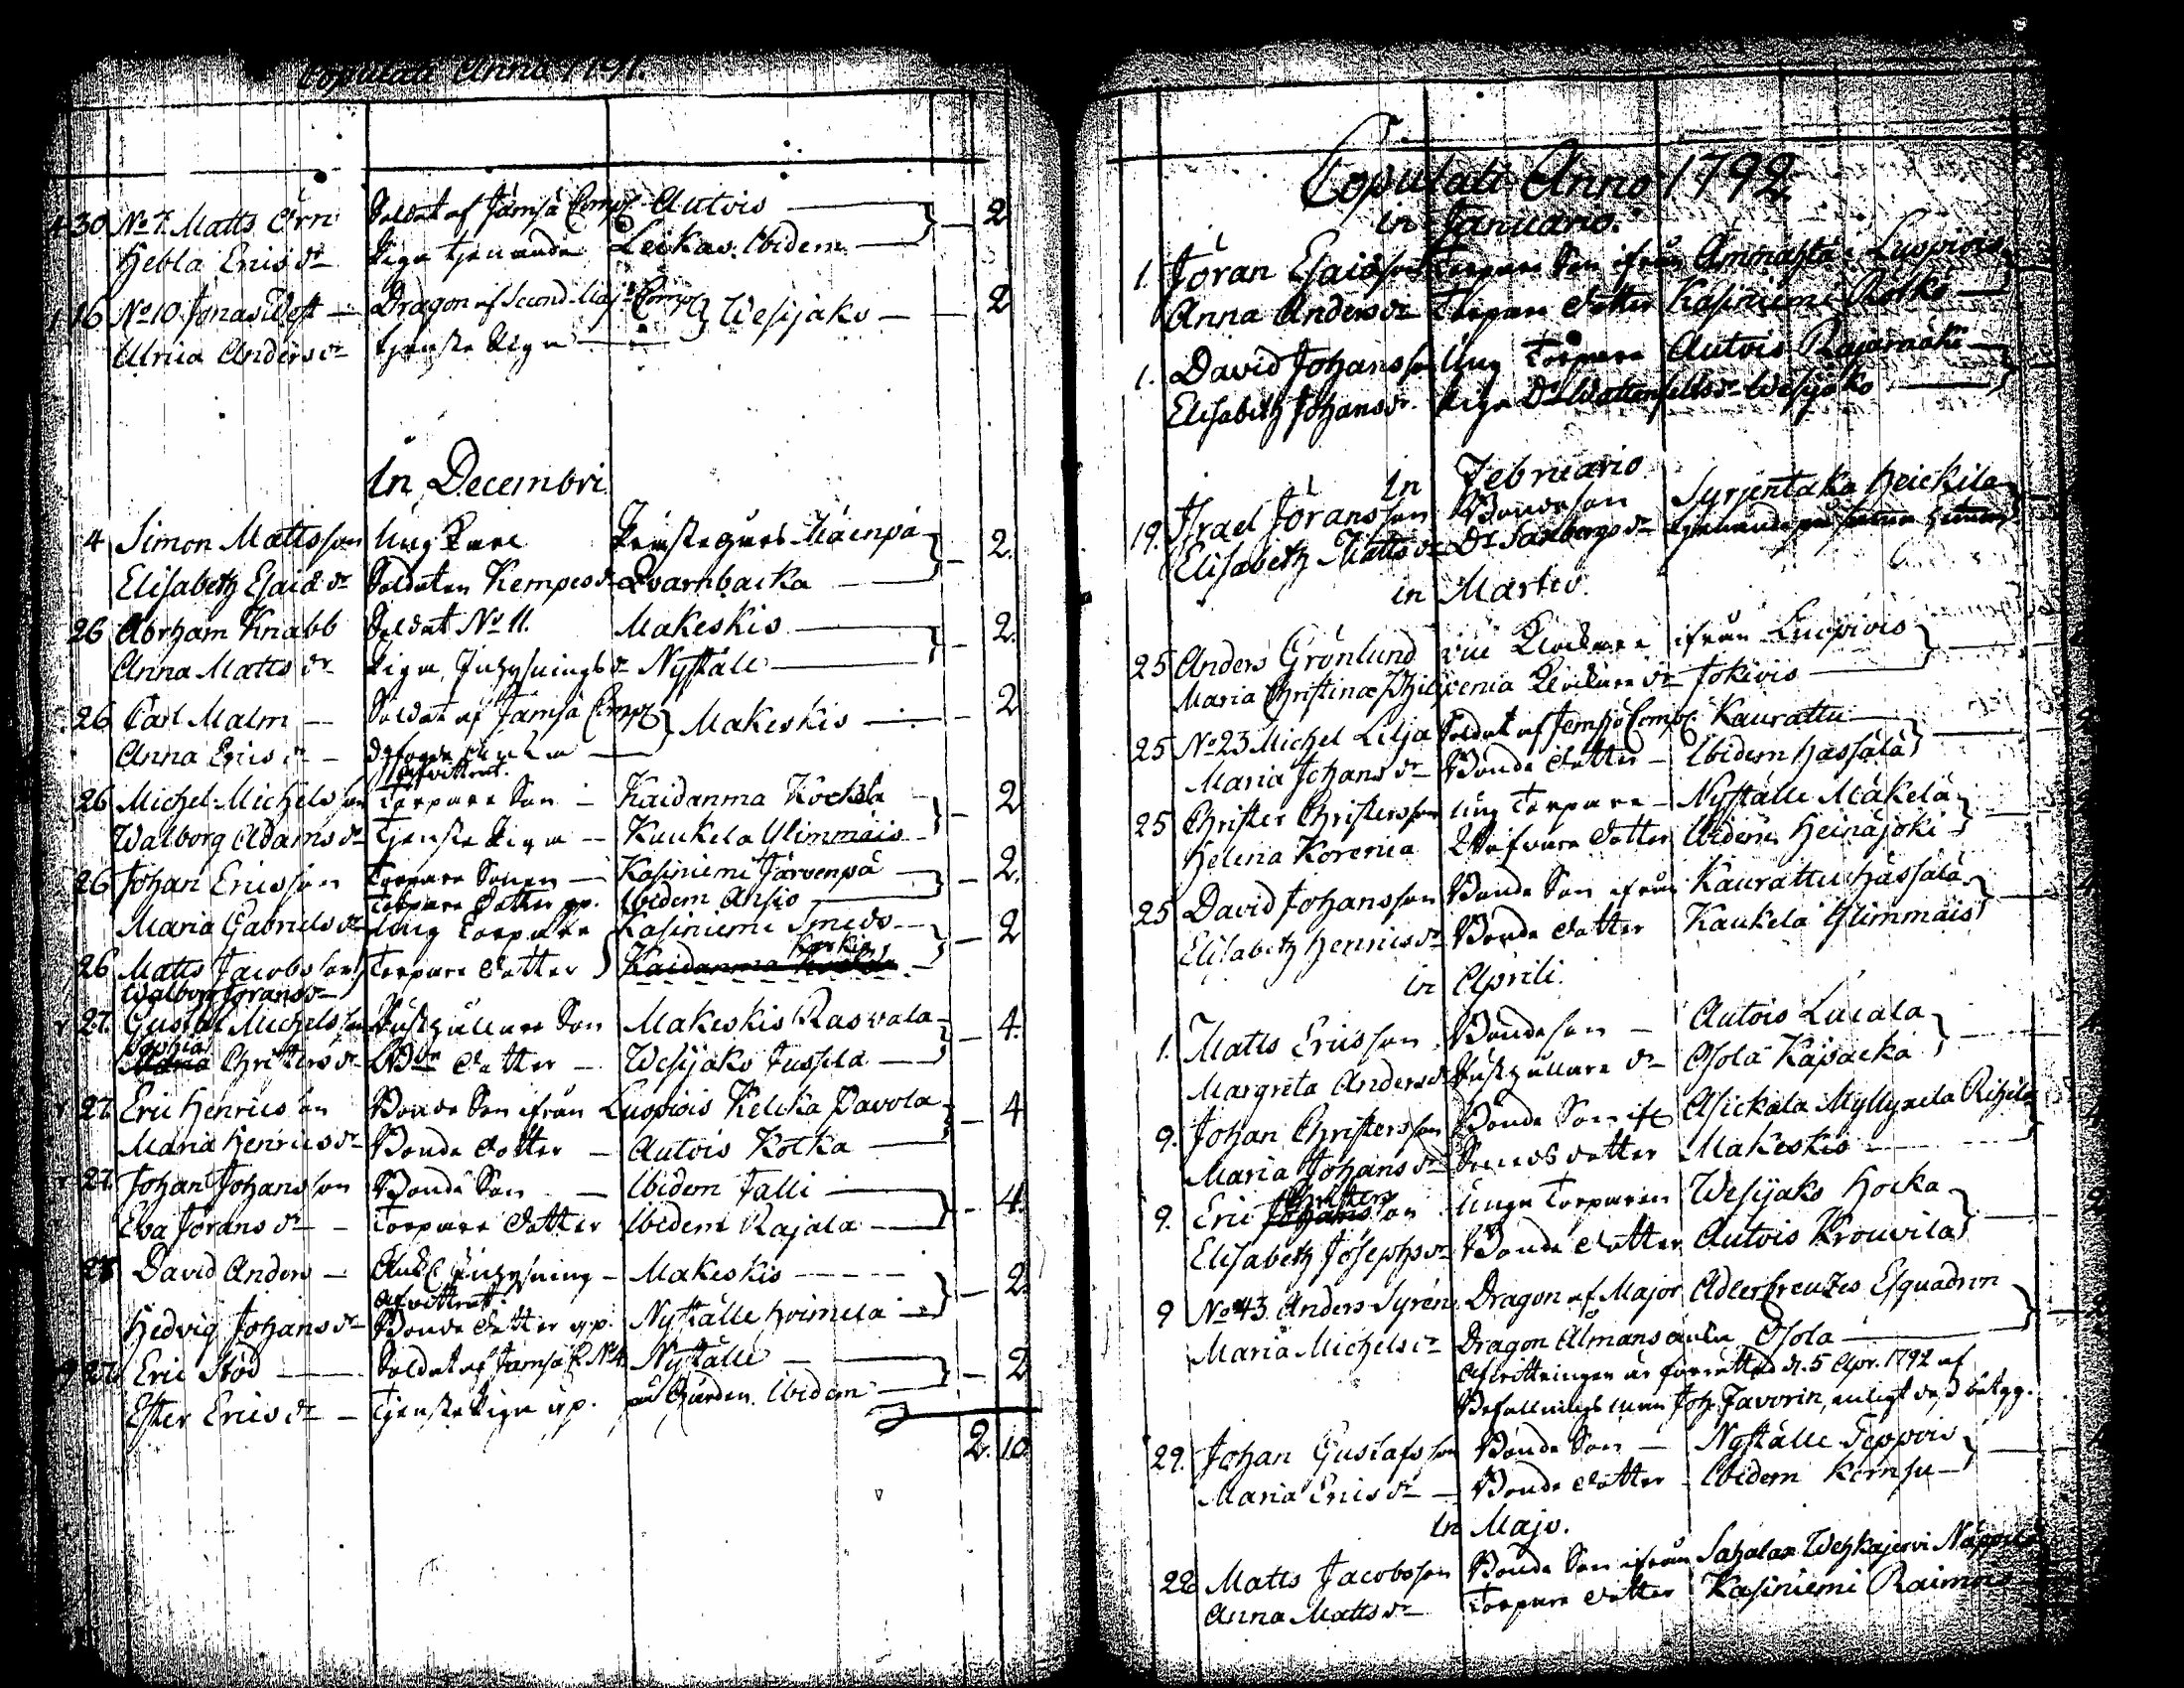 Copulati Anno 1791.
30 No 7. Matts Örn Soldat af Jämsä Comp. Autois 2
Hebla Erics dr Piga tjenande Leikas. Ibidem
16 No 10 Jonas West Dragon af Second Maj:s Comp. Wesijako 2
Ulrica Anders dr tjenste Piga
In Decembri
4 Simon Mattsson Ung Karl Prästegårds Mäenpä 2.
Elisabeth Esaiæ dr Soldaten Kempes dr Qvarnbacka
26 Abrham Knabb Soldat No 11. Makeskis 2.
Anna Matts dr Piga, Inhysnings dr Nystäle
26 Carl Malm Soldat af Jämsä Comp. Makeskis 2
Anna Erics dr Enka
Afvittrat.
26 Michel Michelsson Torpare Son Kaidanma Kockala 2
Walborg Adams dr Tjenste Piga Kaukela Ylimmäis
26 Johan Ericsson Torpare Sonen Kasiniemi Järvenpä 2.
Torpare dotter pp. Ibidem Ansio
Maria Gabriels dr Ung Torpare Kasiniemi Smeds 2
26 Matts Jacobsson Torpare dotter Kaidanma
Walborg Jörans dr
27. Gustaf Michelsson Rusthållare Son Makeskis Rasvala 4.
Sophia
Maria Christers dr dotter Wesijako Jussila
27. Eric Henricsson Bonde Son ifrån Luopiois Kelcka Pavola 4
Maria Henrics dr Bonde dotter Autois Kocka
27. Johan Johansson Bonde Son Ibidem Jalli 4.
Eva Jörans dr Torpare dotter Ibidem Rajala
28 David Anders Enkl. Inhysning Makeskis 2.
Afvittrat.
Hedvig Johans dr Bonde dotter pp. Nyställe Hoimela
27. Eric Stöd Soldat af Jämsä C. No 4 Nyställe 2
Ester Erics dr Tjenste Piga pp. på Gården Ibidem
2. 10
Copulati Anno 1792
in Januario.
1. Jöran Esaiæson Torpare Son ifrån Ammästä Luopiois
Anna Anders dr Torpare dotter Kasiniemi Rotko
1. David Johansson Ung Torpare Autois Rajamäki
Elisabeth Johans dr Piga Wesijako
In Februario
19. Israel Jöransson Bondeson Syrjentaka Heickila
Elisabeth Matts dr Dr Saxbergs dr
in Martio.
25 Anders Grönlund vice Klockare ifrån Luopiois
Maria Christina Philipenia Klockare dr Jokiois
25 No 23 Michel Lilja Soldat af Jemsjö Comp. Kaurattu
Maria Johans dr Bonde dotter Ibidem Hassala
25 Christer Christersson ung Torpare Nyställe Mäkelä
Helena Korenia dotter Ibidem Heinäjoki
25 David Johansson Bonde Son ifrån Kaurattu Hassala
Elisabeth Henrics dr Bonde dotter Kaukela Ylimmäis
in Aprili.
1. Matts Ericsson Bondeson Autois Lucala
Margreta Anders dr Rusthållare dr Osola Käpacka
9. Johan Christersson Bonde Son ifr Asickala Myllykela Rihila
Maria Johans dr Smeds dotter Makeskis
Christers
9. Eric Johansson Unge Torparen Wesijako Hocka
Elisabeth Josephs dr Bonde dotter Autois Krouvila
9 No 43 Anders Syren Dragon af Major Adlercreutzes Esquadron
Maria Michels dr Dragon Ålmans enka Osola
Afvittringen är förrättad d. 5 Apr. 1792 af
Befallningsman Joh. Favorin, enligt dess betyg.
29. Johan Gustafsson Bonde Son Nyställe Seppois
Maria Erics dr Bonde dotter Ibidem Kernsu
In Majo.
22 Matts Jacobsson Bonde Son ifrån Sahalax Wehkajervi Näppilä
Anna Matts dr Torpare dotter Kasiniemi